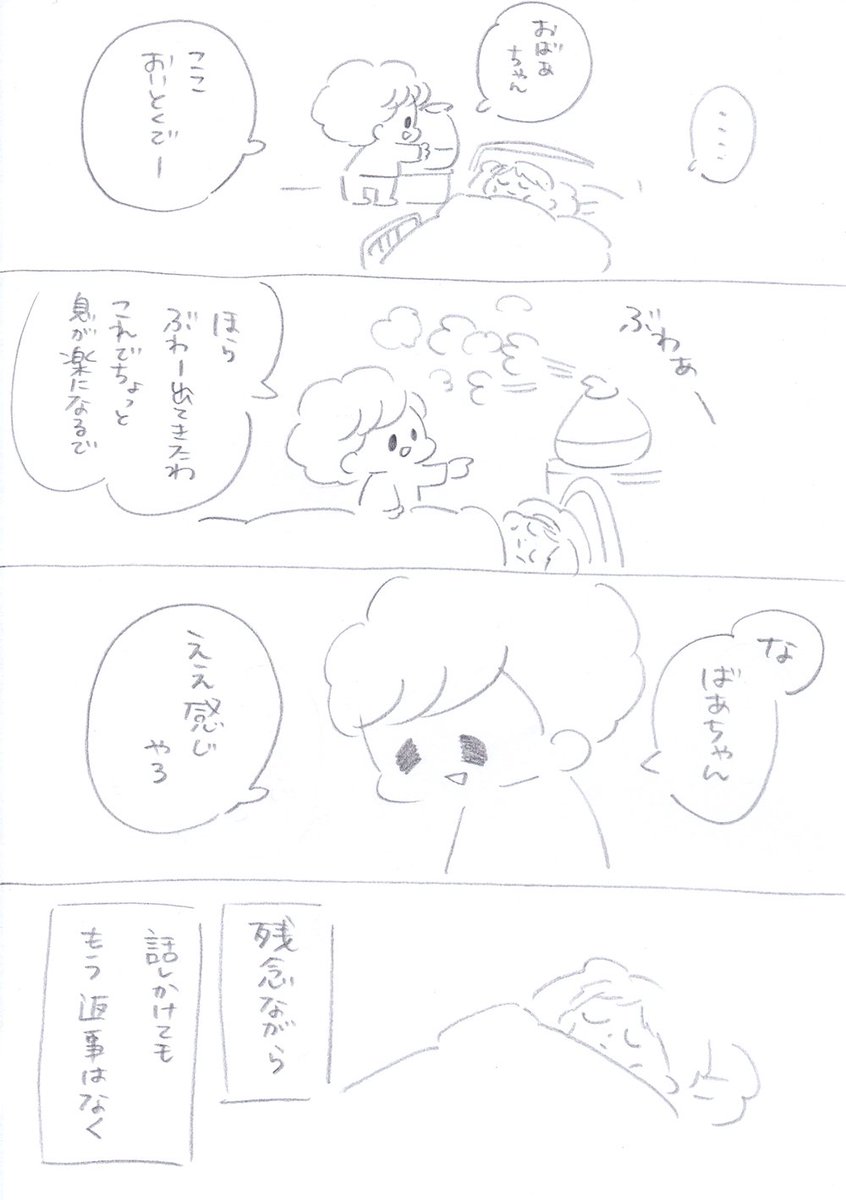 ・・・・
おばあ
ちゃん
ここ
おいとくでー
ぶわぁー
ほら
ぶわー出てきたわ
これでちょっと
息が楽になるで
な
ばあちゃん
ええ感じ
やろ
残念ながら
話しかけても
もう返事はなく